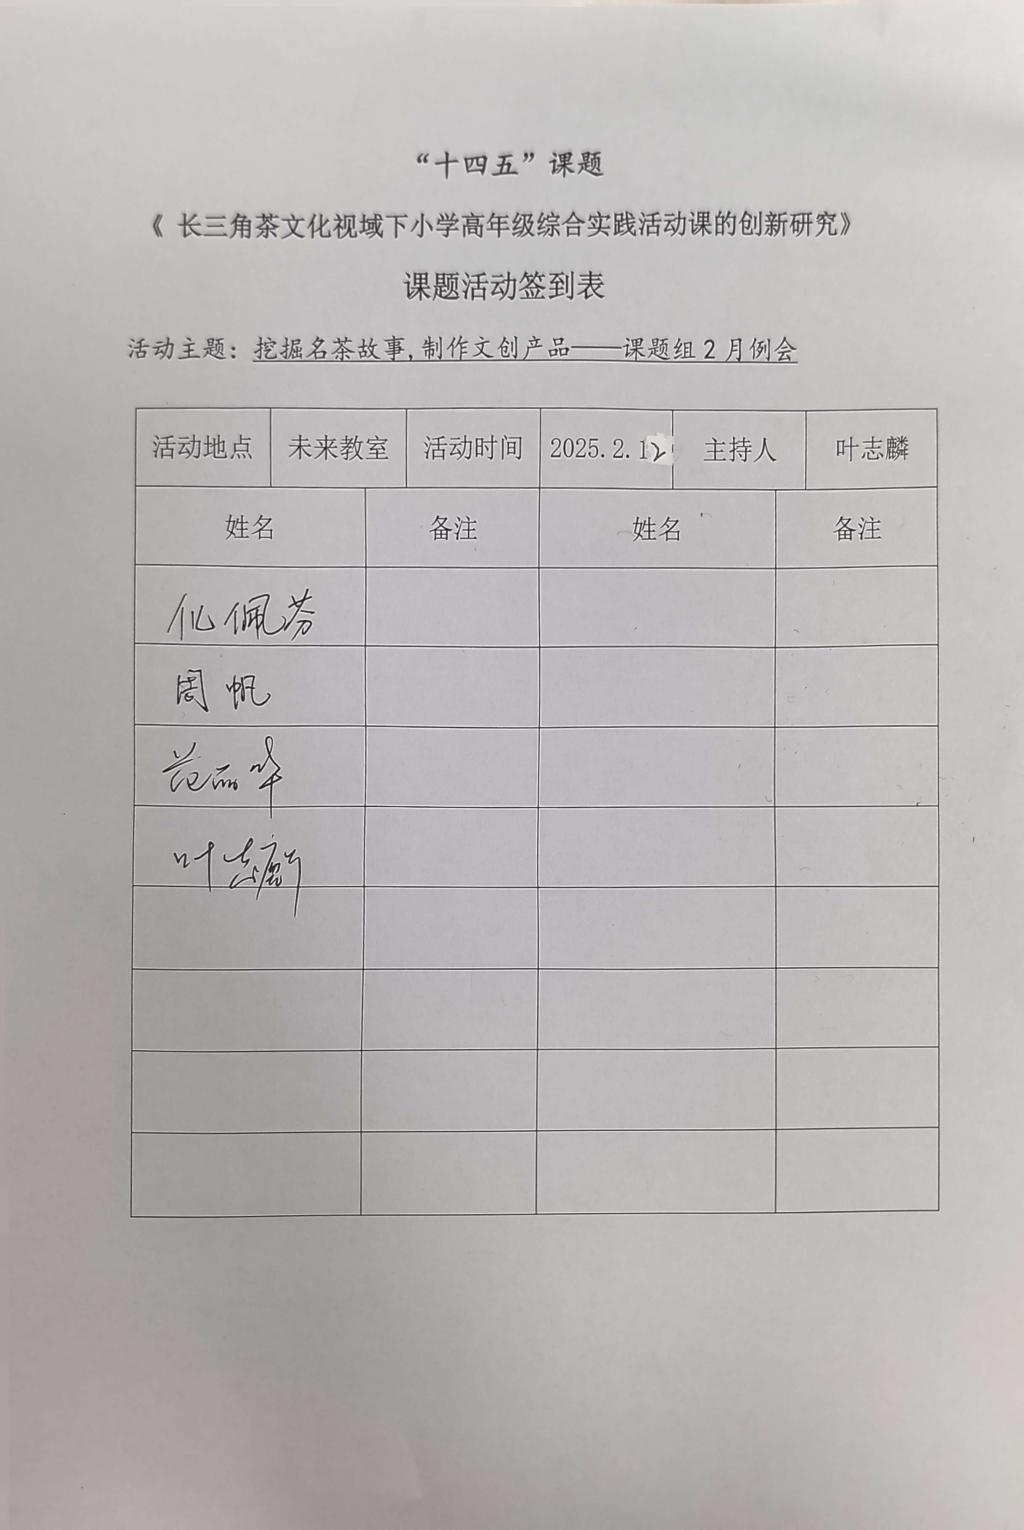 “十四五”课题
《 长三角茶文化视域下小学高年级综合实践活动课的创新研究》
课题活动签到表
活动主题：挖掘名茶故事,制作文创产品——课题组2月例会
活动地点 未来教室 活动时间 2025.2.12 主持人 叶志麟
姓名 备注 姓名 备注
佩芬
周帆
范丽华
叶志麟